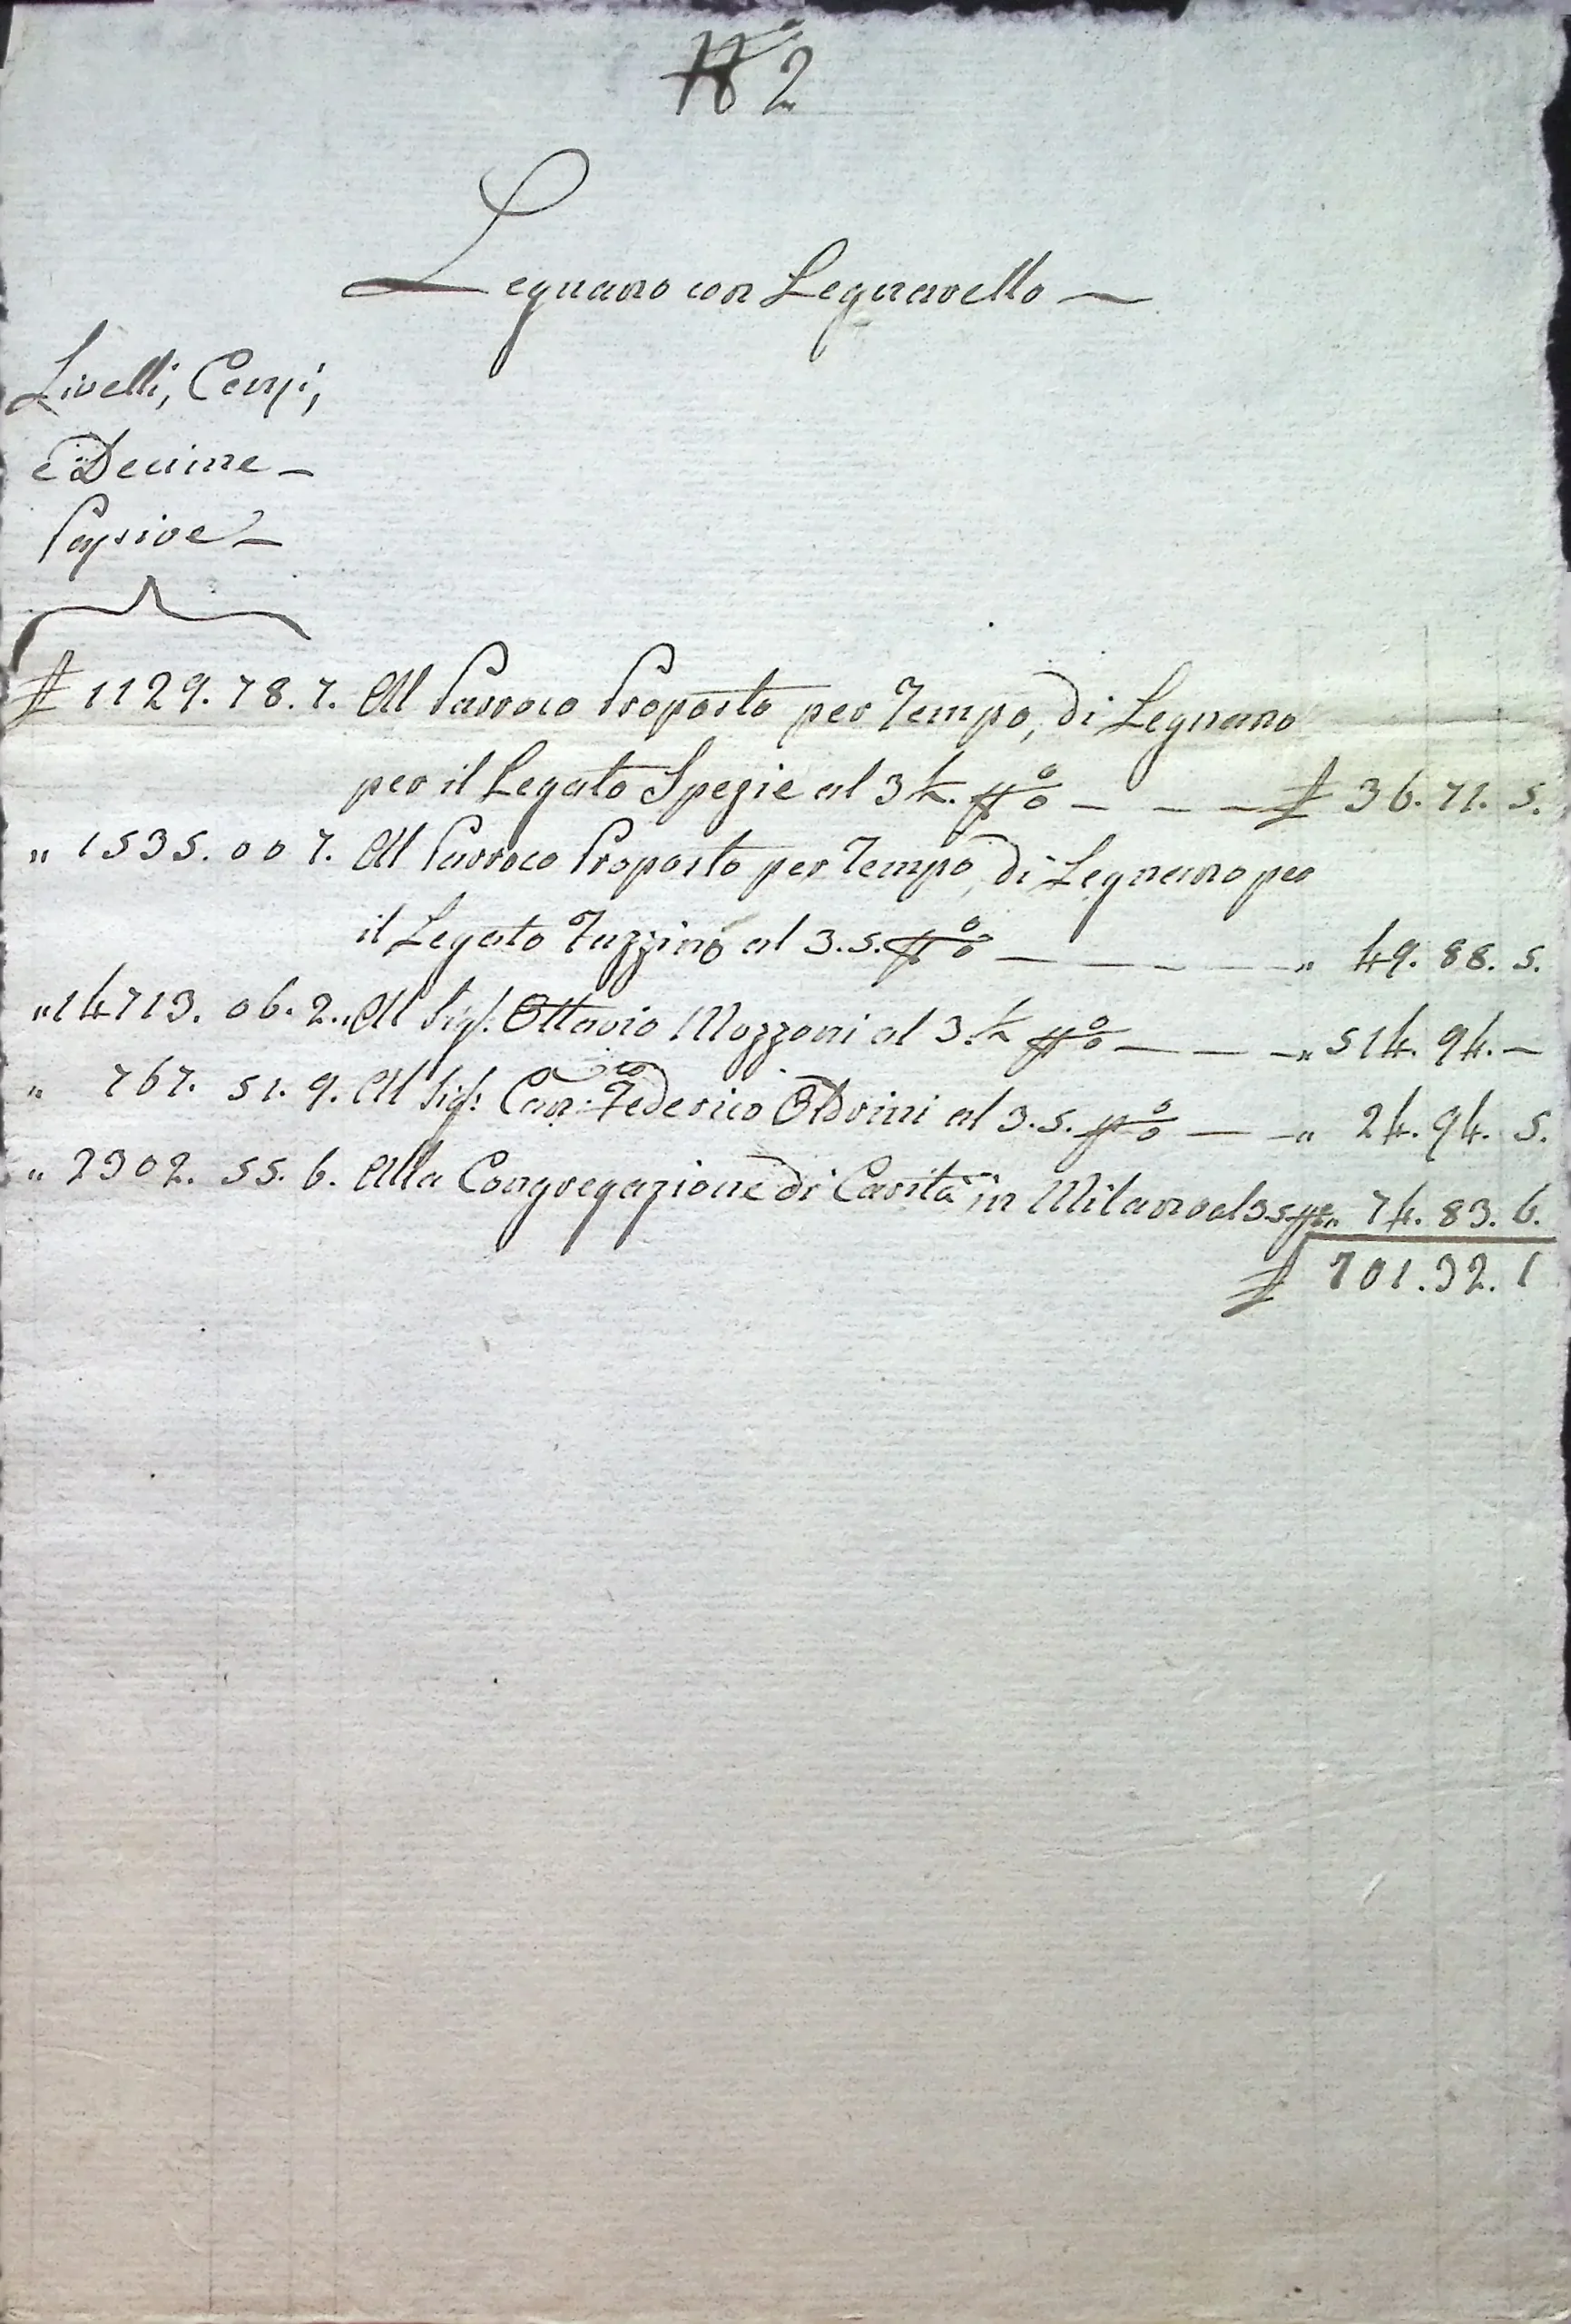 N° 2
Legnano con Legnanello —
Livelli, Censi,
e Decime —
Passive —
£ 1129. 78. 7. Al Parroco Proposto per Tempo, di Legnano
per il Legato Spezie al 3 ¼. p% — — — £ 36. 71. 5.
" 1535. 00 7. Al Parroco Proposto per Tempo, di Legnano per
il Legato Tazzino al 3. 5. p% — — — — " 49. 88. 5.
" 14713. 06. 2. " Al Sigr. Ottavio Mozzoni al 3. ½ p% — — — " 514. 94. —
" 767. 51. 9. Al Sigr. Can:co Federico Oldrini al 3. 5. p% — — " 24. 94. 5.
" 2302. 55. 6. Alla Congregazione di Carità in Milano al 3. 5 p% " 74. 83. 6.
£ 701. 32. 1